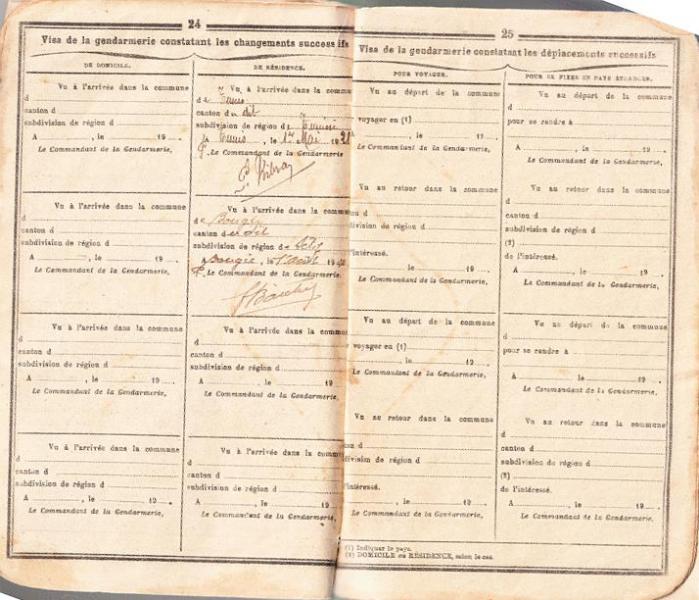 24
Visa de la gendarmerie constatant les changements successifs
DE DOMICILE.
Vu à l'arrivée dans la commune
d
canton d
subdivision de région d
A , le 19 .
Le Commandant de la Gendarmerie,
Vu à l'arrivée dans la commune
d
canton d
subdivision de région d
A , le 19 .
Le Commandant de la Gendarmerie,
Vu à l'arrivée dans la commune
d
canton d
subdivision de région d
A , le 19 .
Le Commandant de la Gendarmerie,
Vu à l'arrivée dans la commune
d
canton d
subdivision de région d
A , le 19 .
Le Commandant de la Gendarmerie,
DE RÉSIDENCE.
Vu à l'arrivée dans la commune
de Tunis
canton du dit
subdivision de région de Tunisie
A Tunis, le 1er Mai 19
P. Le Commandant de la Gendarmerie
Vu à l'arrivée dans la commune
de Bougie
canton du dit
subdivision de région de Sétif
A Bougie, le 19
P. Le Commandant de la Gendarmerie,
Vu à l'arrivée dans la commune
d
canton d
subdivision de région d
A , le 19
Le Commandant de la Gendarmerie,
Vu à l'arrivée dans la commune
d
canton d
subdivision de région d
A , le 19
Le Commandant de la Gendarmerie,
25
Visa de la gendarmerie constatant les déplacements successifs
POUR VOYAGER.
Vu au départ de la commune
voyager en (1)
, le 19 .
Le Commandant de la Gendarmerie,
Vu au retour dans la commune
division de région d
l'intéressé.
, le 19 .
Le Commandant de la Gendarmerie,
Vu au départ de la commune
voyager en (1)
, le 19 .
Le Commandant de la Gendarmerie,
Vu au retour dans la commune
division de région d
l'intéressé.
, le 19 .
Le Commandant de la Gendarmerie,
POUR SE FIXER EN PAYS ÉTRANGER.
Vu au départ de la commune
d
pour se rendre à
A , le 19 .
Le Commandant de la Gendarmerie,
Vu au retour dans la commune
d
canton d
subdivision de région d
(2)
de l'intéressé.
A , le 19 .
Le Commandant de la Gendarmerie,
Vu au départ de la commune
d
pour se rendre à
A , le 19 .
Le Commandant de la Gendarmerie,
Vu au retour dans la commune
d
canton d
subdivision de région d
(2)
de l'intéressé.
A , le 19 .
Le Commandant de la Gendarmerie,
(1) Indiquer le pays.
(2) DOMICILE ou RÉSIDENCE, selon le cas.